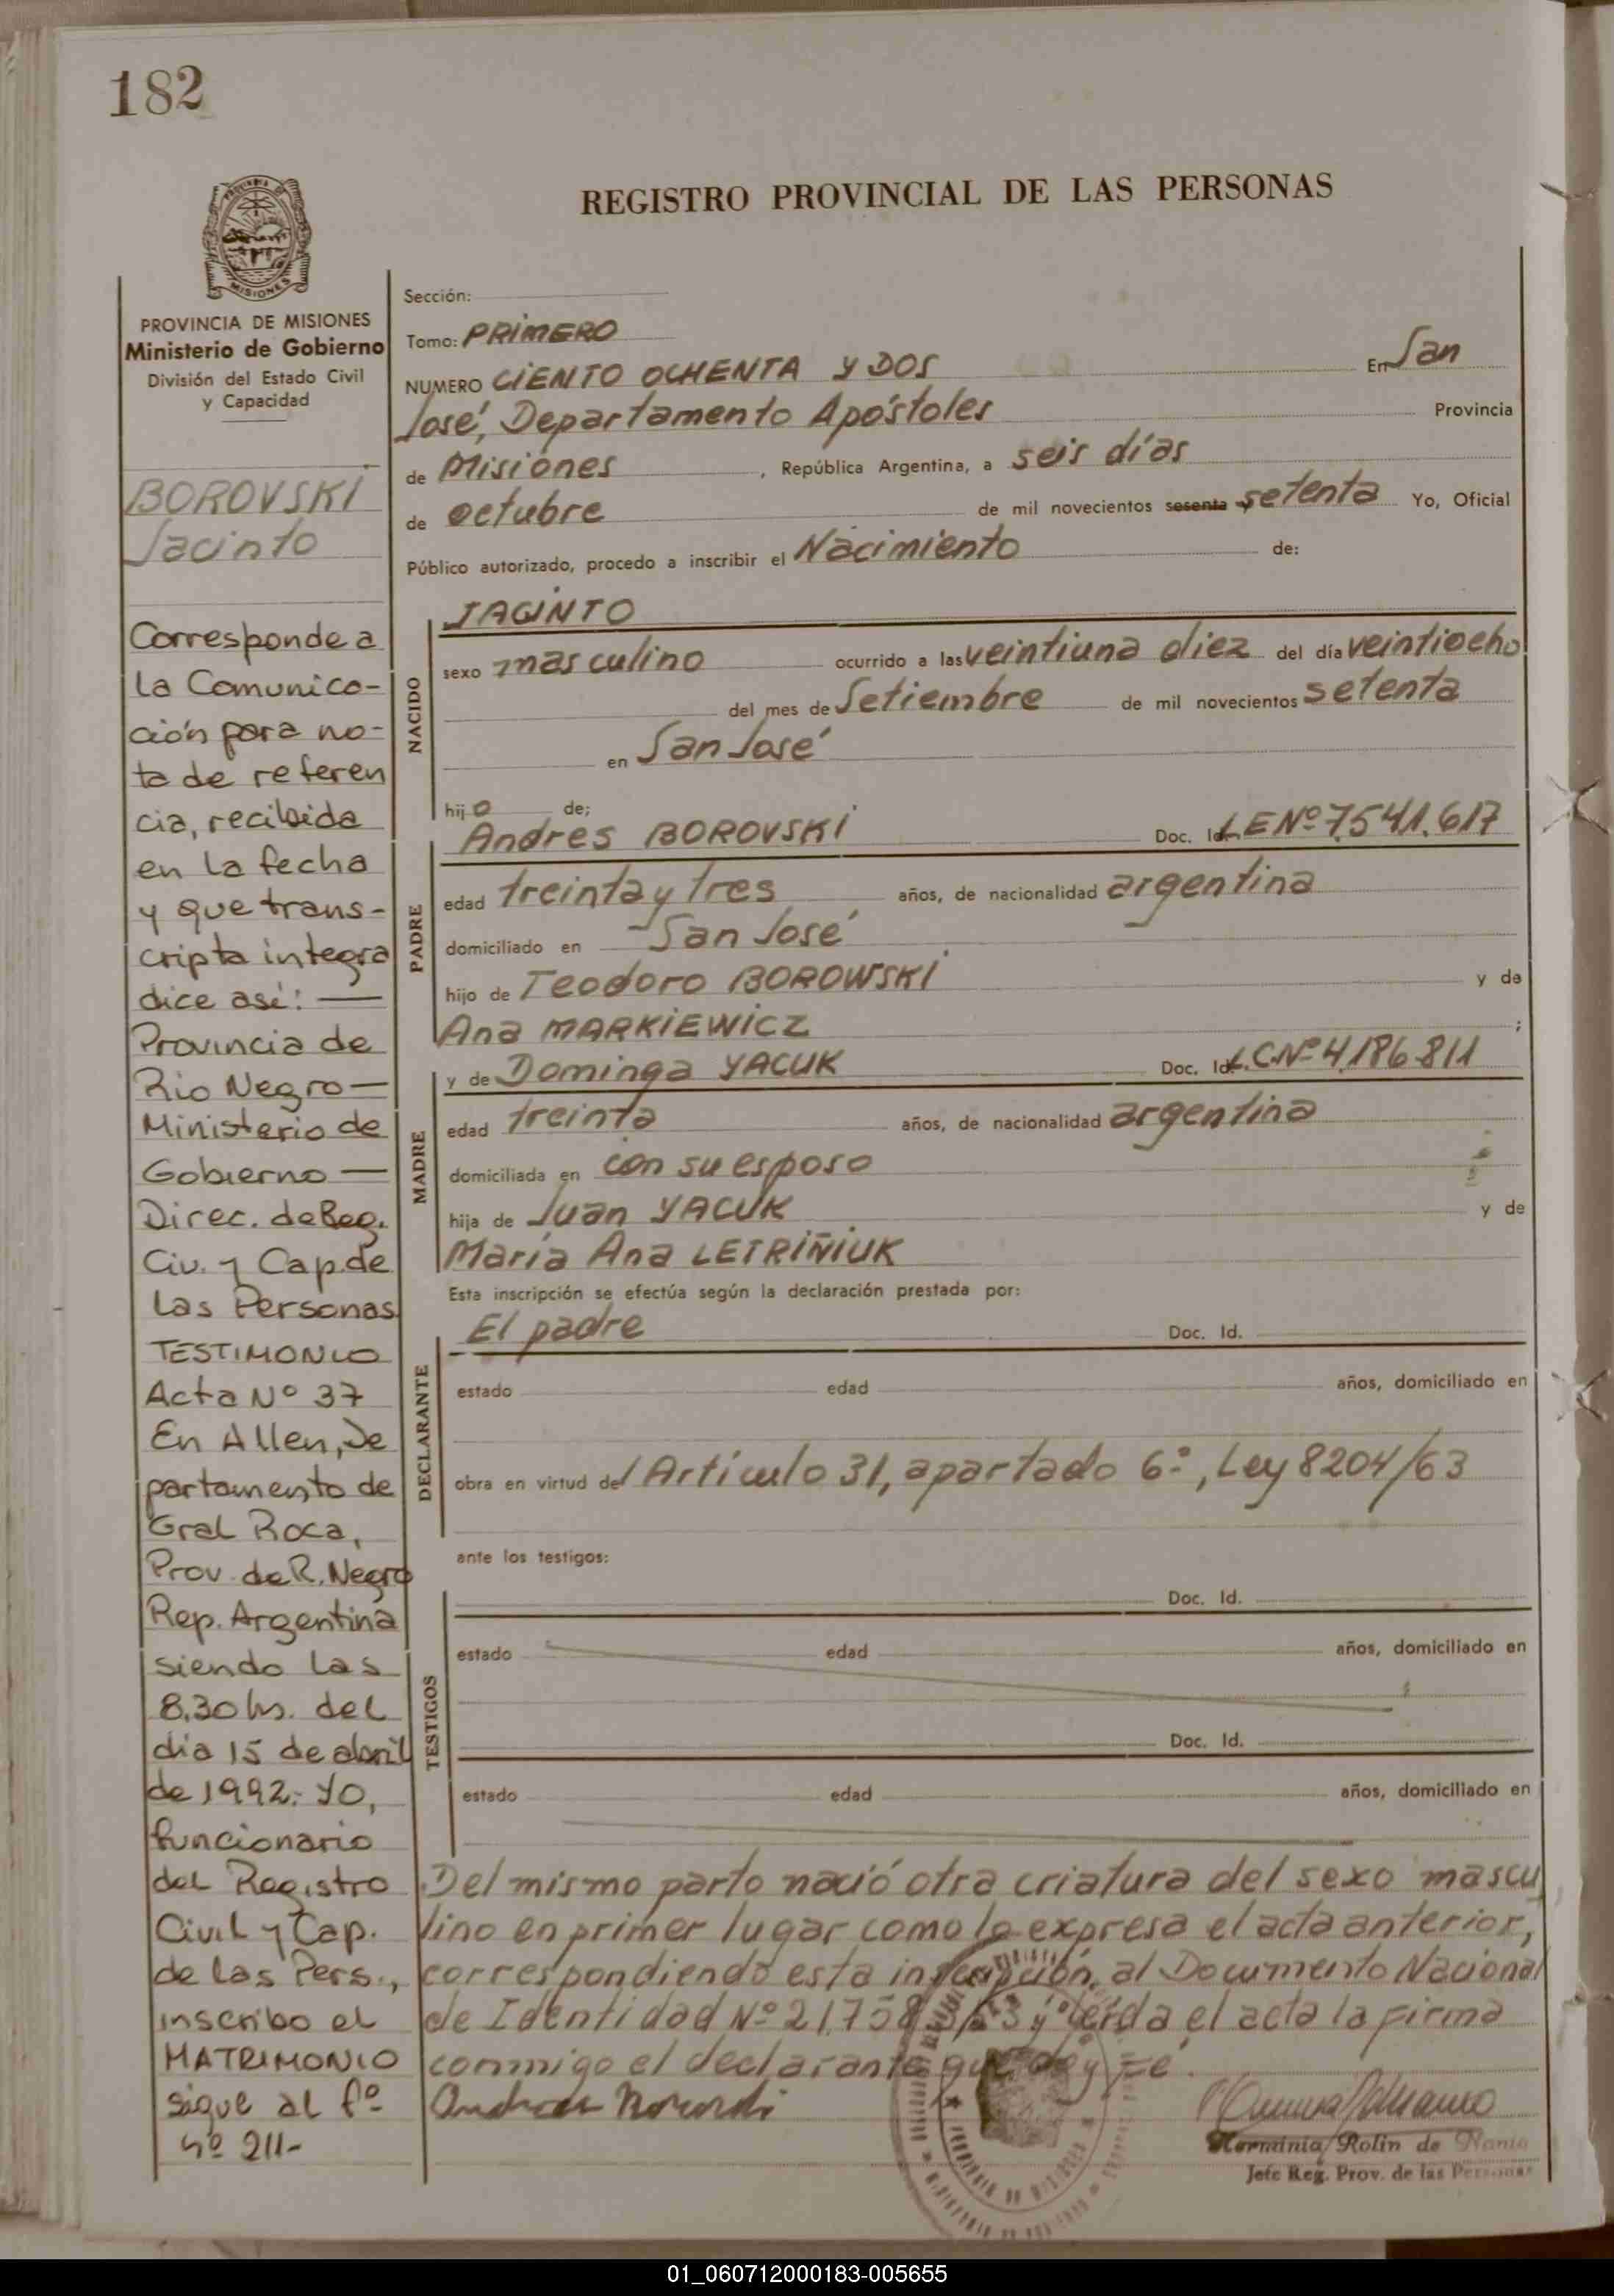 182
REGISTRO PROVINCIAL DE LAS PERSONAS
MISIONES
PROVINCIA DE MISIONES
Ministerio de Gobierno
División del Estado Civil
y Capacidad
BOROVSKI
Jacinto
Corresponde a
la Comunica-
ción para no-
ta de referen
cia, recibida
en la fecha
y que trans-
cripta integra
dice así: —
Provincia de
Rio Negro —
Ministerio de
Gobierno —
Direc. de Reg.
Civ. y Cap. de
las Personas
TESTIMONIO
Acta Nº 37
En Allen, De
partamento de
Gral Roca,
Prov. de R. Negro
Rep. Argentina
siendo las
8,30 hs. del
dia 15 de abril
de 1992.- YO,
funcionario
del Registro
Civil y Cap.
de las Pers.,
inscribo el
MATRIMONIO
sigue al fº
nº 211-
Sección:
Tomo: PRIMERO
NUMERO CIENTO OCHENTA Y DOS En San
José, Departamento Apóstoles Provincia
de Misiones , República Argentina, a seis días
de octubre de mil novecientos sesenta setenta Yo, Oficial
Público autorizado, procedo a inscribir el Nacimiento de:
NACIDO
JACINTO
sexo masculino ocurrido a las veintiuna diez del día veintiocho
del mes de Setiembre de mil novecientos setenta
en San José
hijo de;
PADRE
Andres BOROVSKI Doc. Id. L.E Nº 7.541.617
edad treinta y tres años, de nacionalidad argentina
domiciliado en San José
hijo de Teodoro BOROWSKI y de
Ana MARKIEWICZ ;
MADRE
y de Dominga YACUK Doc. Id. L.C.Nº 4.186.811
edad treinta años, de nacionalidad argentina
domiciliada en con su esposo
hija de Juan YACUK y de
María Ana LETRIÑIUK
Esta inscripción se efectúa según la declaración prestada por:
DECLARANTE
El padre Doc. Id.
estado edad años, domiciliado en
obra en virtud del Artículo 31, apartado 6º, Ley 8204/63
ante los testigos:
TESTIGOS
Doc. Id.
estado edad años, domiciliado en
Doc. Id.
estado edad años, domiciliado en
Del mismo parto nació otra criatura del sexo mascu
lino en primer lugar como lo expresa el acta anterior,
correspondiendo esta inscripción al Documento Nacional
de Identidad Nº y leída el acta la firma
conmigo el declarante que doy fé.
Herminia Rolin de
Jefe Reg. Prov. de las Personas
01_060712000183-005655